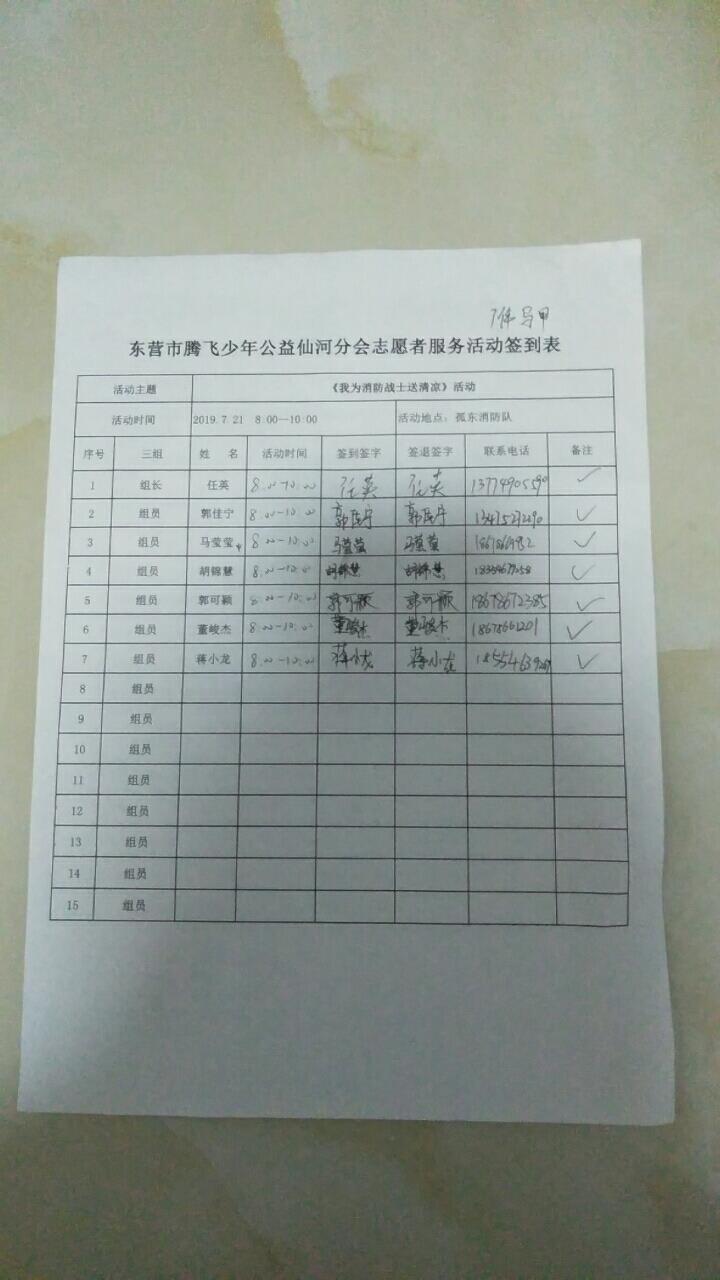 马甲
东营市腾飞少年公益仙河分会志愿者服务活动签到表
活动主题 《我为消防战士送清凉》活动
活动时间 2019.7.21 8:00—10:00 活动地点：孤东消防队
序号 三组 姓 名 活动时间 签到签字 签退签字 联系电话 备注
1 组长 任英 8:00-10:00 任英 任英 13774990559 ✓
2 组员 郭佳宁 8:00-10:00 郭佳宁 郭佳宁 ✓
3 组员 马莹莹 8:00-10:00 马莹莹 马莹莹 ✓
4 组员 胡锦慧 8:00-10:00 胡锦慧 胡锦慧 ✓
5 组员 郭可颖 8:00-10:00 郭可颖 郭可颖 18678672385 ✓
6 组员 董峻杰 8:00-10:00 董峻杰 董峻杰 18678661201 ✓
7 组员 蒋小龙 8:00-10:00 蒋小龙 蒋小龙 ✓
8 组员
9 组员
10 组员
11 组员
12 组员
13 组员
14 组员
15 组员